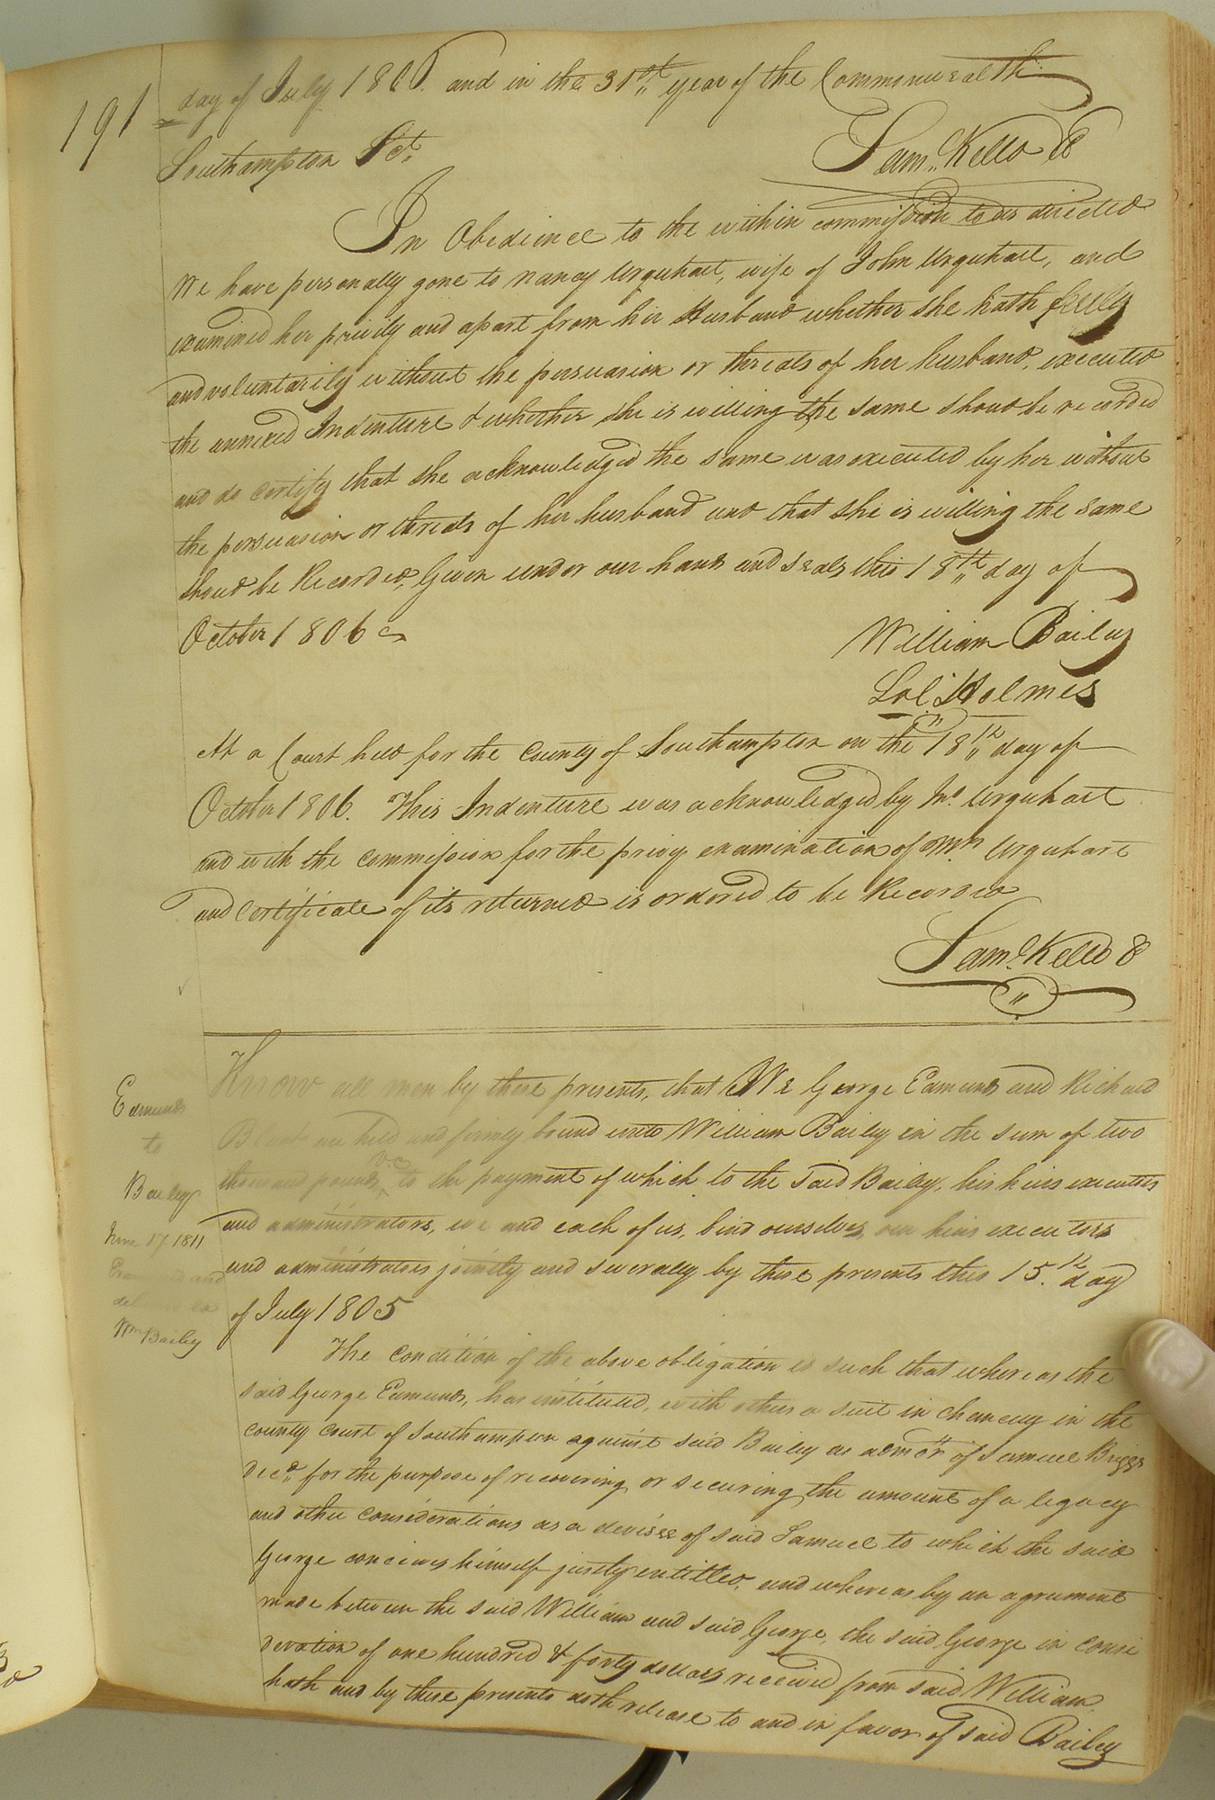 191
day of July 180 and in the 31st year of the Commonwealth
Saml. Kello
Southampton Sct.
In Obedience to the within commission to us directed
We have personally gone to Nancy Urquhart, wife of John Urquhart, and
examined her privily and apart from her Husband whether she hath freely
and voluntarily without the persuasion or threats of her husband, executed
the annexed Indenture & whether she is willing the same should be recorded
and do certify that she acknowledged the same was executed by her without
the persuasion or threats of her husband and that she is willing the same
should be Recorded. Given under our hands and seals this 18th day of
October 1806
William Bailey
Sol. Holmes
At a Court held for the County of Southampton on the 18th day of
October 1806. This Indenture was acknowledged by Jno. Urquhart
and with the commission for the privy examination of Mrs Urquhart
and certificate of its returned is ordered to be Recorded
Saml. Kello
Edmunds
to
Bailey
June 17 1811
Examined and
Wm Bailey
Know all men by these presents, that We George Edmunds and Richard
are held and firmly bound unto William Bailey in the sum of two
thousand pounds, to the payment of which to the said Bailey, his heirs executors
and administrators, we and each of us, bind ourselves, our heirs executors
and administrators jointly and severally by these presents this 15.th day
of July 1805
The condition of the above obligation is such that whereas the
said George Edmunds, has instituted, with others a suit in chancery in the
county court of Southampton against said Bailey as admor. of Samuel Briggs
Decd. for the purpose of recovering, or securing the amount of a legacy
and other considerations as a devisee of said Samuel to which the said
George conceives himself justly entitled, and whereas by an agreement
made between the said William and said George, the said George in consi
deration of one hundred & forty dollars received from said William
hath and by these presents doth release to and in favor of said Bailey